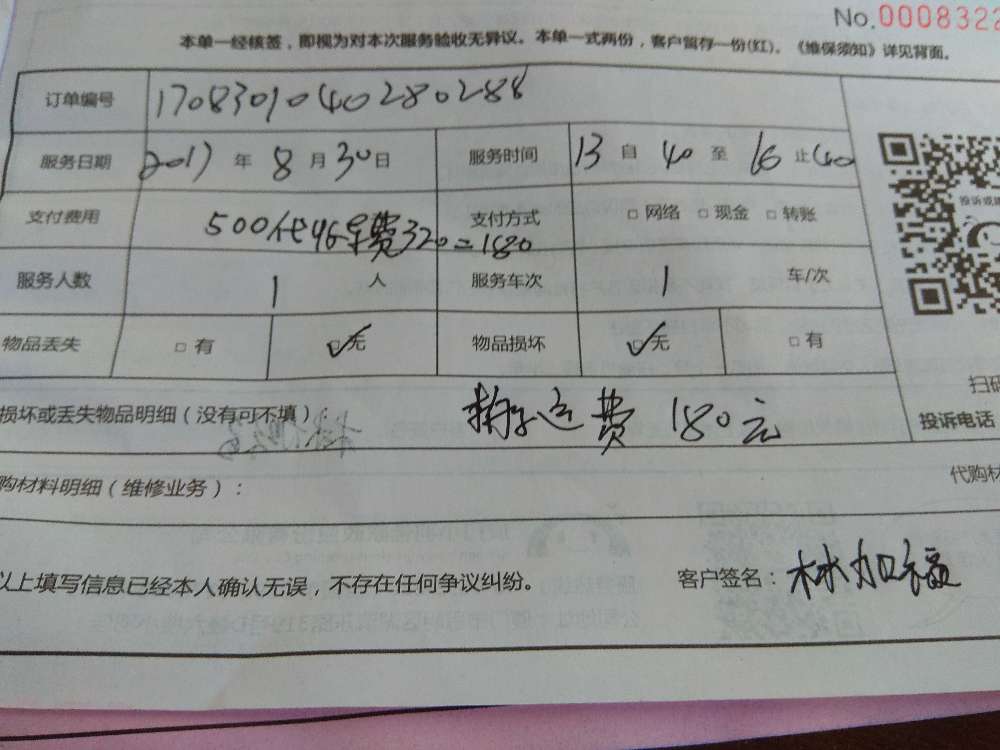 No.0008322
本单一经核签，即视为对本次服务验收无异议。本单一式两份，客户留存一份(红)。《维保须知》详见背面。
订单编号 170830104028028​8
服务日期 2017 年 8 月 30 日 服务时间 13 自 40 至 16 止 40
支付费用 500代收车费320=180 支付方式 □ 网络 □ 现金 □ 转账
服务人数 1 人 服务车次 1 车/次
物品丢失 □ 有 ☑无 物品损坏 ☑无 □ 有
投诉或建
扫码
损坏或丢失物品明细（没有可不填）： 运费 180元
投诉电话
购材料明细（维修业务）： 代购材
以上填写信息已经本人确认无误，不存在任何争议纠纷。 客户签名：林加福